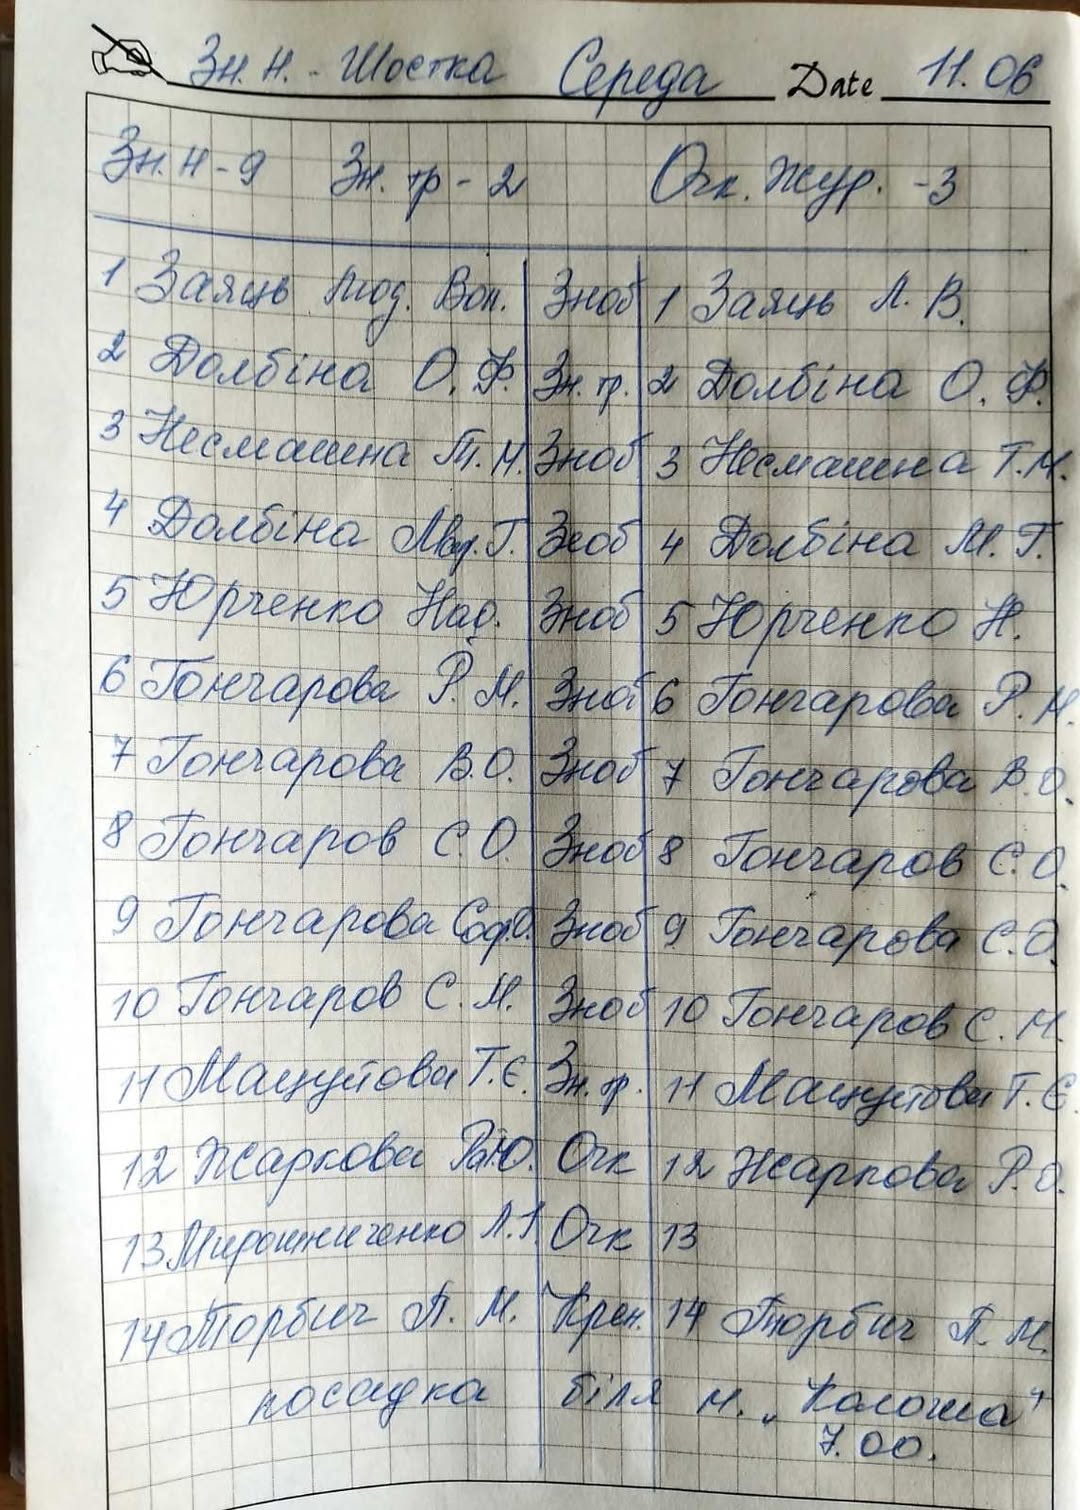 Зн. Н. - Шостка Середа Date 11.06
Зн. Н - 9 Зн. тр - 2 Очк. Жур. - 3
1 Заяць Люд. Вол. Зноб 1 Заяць Л. В.
2 Долбіна О. Ф. Зн. тр. 2 Долбіна О. Ф.
3 Несмашна Т. М. Зноб 3 Несмашна Т. М.
4 Долбіна Г. Зноб 4 Долбіна М. Г.
5 Юрченко Над. Зноб 5 Юрченко Н.
6 Гончарова Р. М. Зноб 6 Гончарова Р. М.
7 Гончарова В. О. Зноб 7 Гончарова В. О.
8 Гончаров С. О. Зноб 8 Гончаров С. О.
9 Гончарова Соф. О. Зноб 9 Гончарова С. О.
10 Гончаров С. М. Зноб 10 Гончаров С. М.
11 Т. Є. Зн. тр. 11 Т. Є.
12 Жаркова Очк 12 Жаркова Р. О.
13 Мирошниченко Л. Очк 13
14 Торбич П. М. Крен. 14 Торбич П. М.
посадка біля м. „Калоша"
7.00.